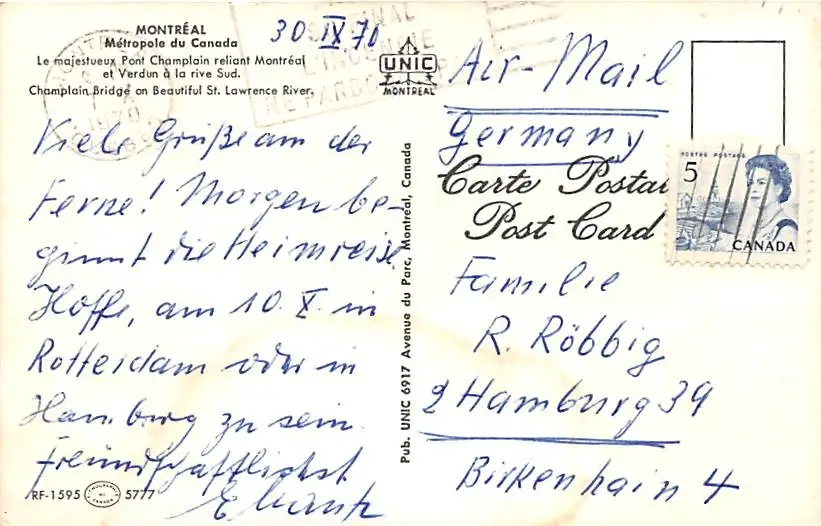 MONTRÉAL
Métropole du Canada
Le majestueux Pont Champlain reliant Montréal
et Verdun à la rive Sud.
Champlain Bridge on Beautiful St. Lawrence River.
30 IX 70
UNIC
MONTREAL
1970
Viele Grüße am der
Ferne! Morgen be-
ginnt die Heimreise.
Hoffe, am 10. X. in
Rotterdam oder in
Hamburg zu sein.
Freundschaftlichst
RF-1595
5777
Pub. UNIC 6917 Avenue du Parc, Montréal, Canada
Air-Mail
Germany
Carte Postal
Post Card
POSTES POSTAGE
5
CANADA
Familie
R. Röbbig
2 Hamburg 39
Birkenhain 4